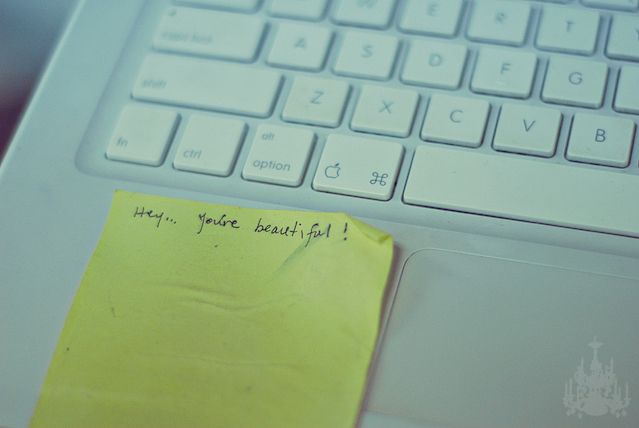 W E R T Y
caps lock A S D F G
shift Z X C V B
fn ctrl alt option ⌘
Hey... You're beautiful!